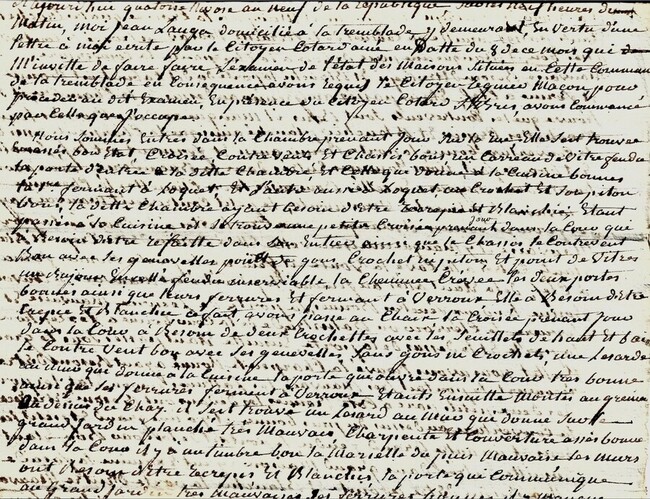 aujourd'hui quatorze nivose an neuf de la republique sur les neuf heures du
Matin, moi jean Lauga domicilié à la tremblade y demeurant, En vertu d'une
lettre à moi ecrite par le Citoyen Cotard aîné en datte du 8 de ce mois qui
M'invitte de faire faire L'examen de l'état des Maisons situées en Cette Commune
de la tremblade en Consequence avons requis le Citoyen Macon pour
proceder au dit Examen, En présence du Citoyen avons Commancé
par Celle que J'occupe
Nous sommes Entrés dans la Chambre prenant jour sur la rue Elle s'est trouvée
En assés bon Etat, Croisée Contrevents Et Chassis bons un Carreau de Vitre fendu
la porte d'entrée à la ditte Chambre Et Celle qui donne à la Cuisine bonnes
fermant à loquet Et l'autre aussi à loquet, un Crochet Et son piton
bon, la ditte Chambre ayant besoin d'Etre Ecrepie Et Blanchie, Etant
passé à la Cuisine s'est trouvé une petite Croisée prenant jour dans la Cour qui
à Besoin d'Etre reffaitte dans son Entier ainsi que le Chassis, le Contrevent
bon avec ses genevelles point de gons Crochet ni piton Et point de Vitres
fendu inservirable, la Cheminée Crevée les deux portes
bonnes ainsi que leurs ferrures Et fermant à Verroux Elle à Besoin d'Etre
Et Blanchie à fait, avons passé au Chaix la Croisée prenant jour
dans la Cour à Besoin de deux Crochettes avec ses feuillets de haut Et bas
le Contre Vent bon avec ses genevelles, sans gons ni Crochets, une Lesarde
au mur qui donne à la Cuisine la porte qui ouvre dans la Cour très bonne
ainsi que ses ferrures fermant à Verroux Etants Ensuitte Montés au grenier
au dessus du Chay il s'est trouvé un Lesard au Mur qui donne sur le
grand jardin planche très Mauvais Charpente Et Couverture assés bonne
dans la Cour il y à un timbre bon la Marselle du puis Mauvaise les Murs
ont Besoin d'Etre Ecrepis Et Blanchis la porte qui Communique
au grand jardin très Mauvaise ses ferrures